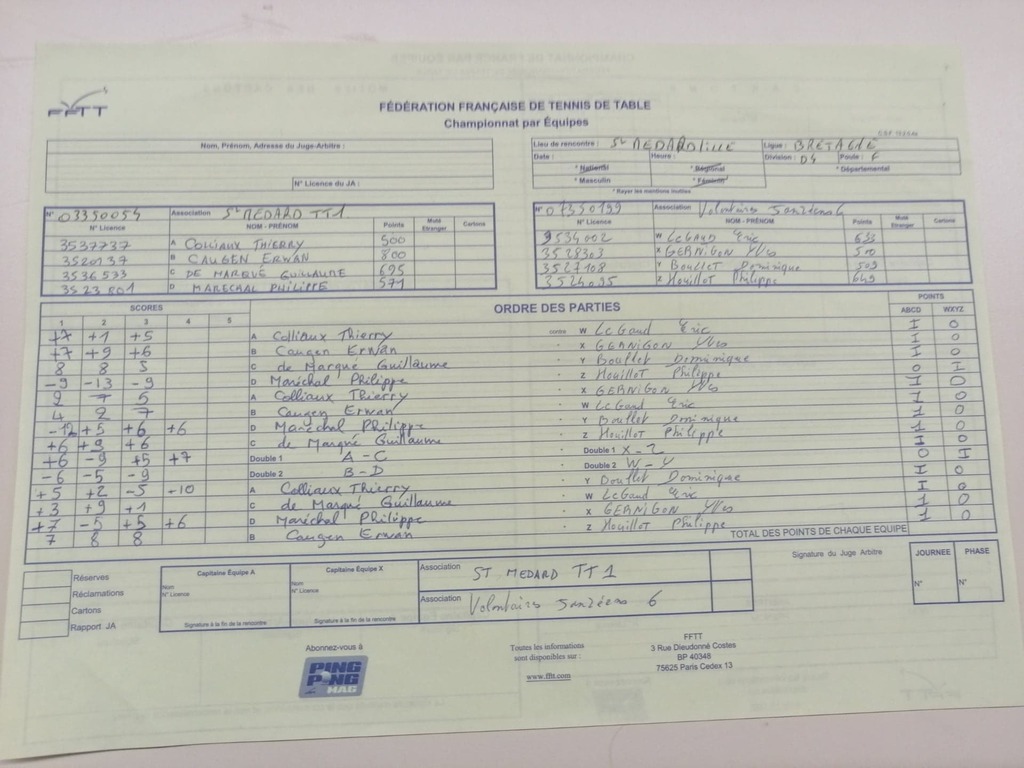 FFTT
FÉDÉRATION FRANÇAISE DE TENNIS DE TABLE
Championnat par Équipes
Nom, Prénom, Adresse du Juge-Arbitre :
N° Licence du JA :
Lieu de rencontre : St MEDARD/ILLE Ligue : BRETAGNE
Date : Heure : Division : D4 Poule : F
* National * Régional * Départemental
* Masculin * Féminin
* Rayer les mentions inutiles
N° 03350054 Association St MEDARD TT1
N° Licence NOM - PRÉNOM Points Muté Etranger Cartons
3537737 A COLLIAUX THIERRY 500
3520137 B CAUGEN ERWAN 800
3536533 C DE MARQUÉ GUILLAUME 695
3523801 D MARECHAL PHILIPPE 571
N° 07350199 Association Volontaires Janzéens 6
N° Licence NOM - PRÉNOM Points Muté Etranger Cartons
9534002 W LEGAUD Eric 633
3528303 X GERNIGON YVES 500
3527108 Y Boullet Dominique 503
3524035 Z Houillot Philippe 649
SCORES ORDRE DES PARTIES POINTS
1 2 3 4 5 ABCD WXYZ
+7 +1 +5 A Colliaux Thierry contre W LeGaud Eric I 0
+7 +9 +6 B Caugen Erwan - X GERNIGON YVes I 0
8 8 5 C de Marqué Guillaume - Y Boullet Dominique I 0
-9 -13 -9 D Maréchal Philippe - Z Houillot Philippe 0 I
2 7 5 A Colliaux Thierry - X GERNIGON YVes 1 0
4 2 7 B Caugen Erwan - W LeGaud Eric 1 0
-12 +5 +6 +6 D Maréchal Philippe - Y Boullet Dominique 1 0
+6 +9 +6 C de Marqué Guillaume - Z Houillot Philippe 1 0
+6 -9 +5 +7 Double 1 A-C - Double 1 X-Z I 0
-6 -5 -9 Double 2 B-D - Double 2 W-Y 0 I
+5 +2 -5 -10 A Colliaux Thierry - Y Boullet Dominique I 0
+3 +9 +1 C de Marqué Guillaume - W LeGaud Eric I 0
+7 -5 +5 +6 D Maréchal Philippe - X GERNIGON YVes 1 0
7 8 8 B Caugen Erwan - Z Houillot Philippe 1 0
TOTAL DES POINTS DE CHAQUE EQUIPE
Réserves
Réclamations
Cartons
Rapport JA
Capitaine Équipe A
Nom
N° Licence
Signature à la fin de la rencontre
Capitaine Équipe X
Nom
N° Licence
Signature à la fin de la rencontre
Association ST MEDARD TT1
Association Volontaires Janzéens 6
Signature du Juge Arbitre
JOURNEE PHASE
N° N°
Abonnez-vous à
PING PONG MAG
Toutes les informations
sont disponibles sur :
www.fftt.com
FFTT
3 Rue Dieudonné Costes
BP 40348
75625 Paris Cedex 13